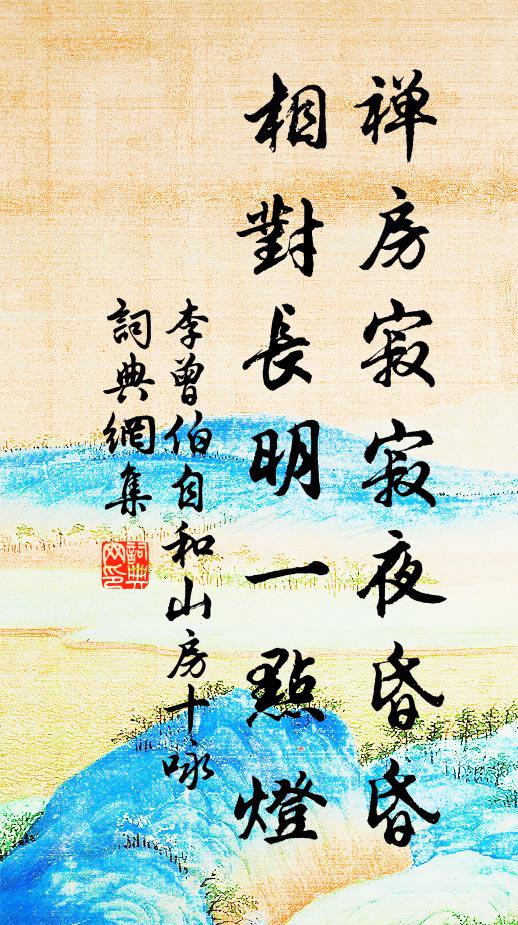 禅房寂寂夜昏昏
相對長明一點燈
李曾伯自和山房十咏
詞典網集
詞典網印